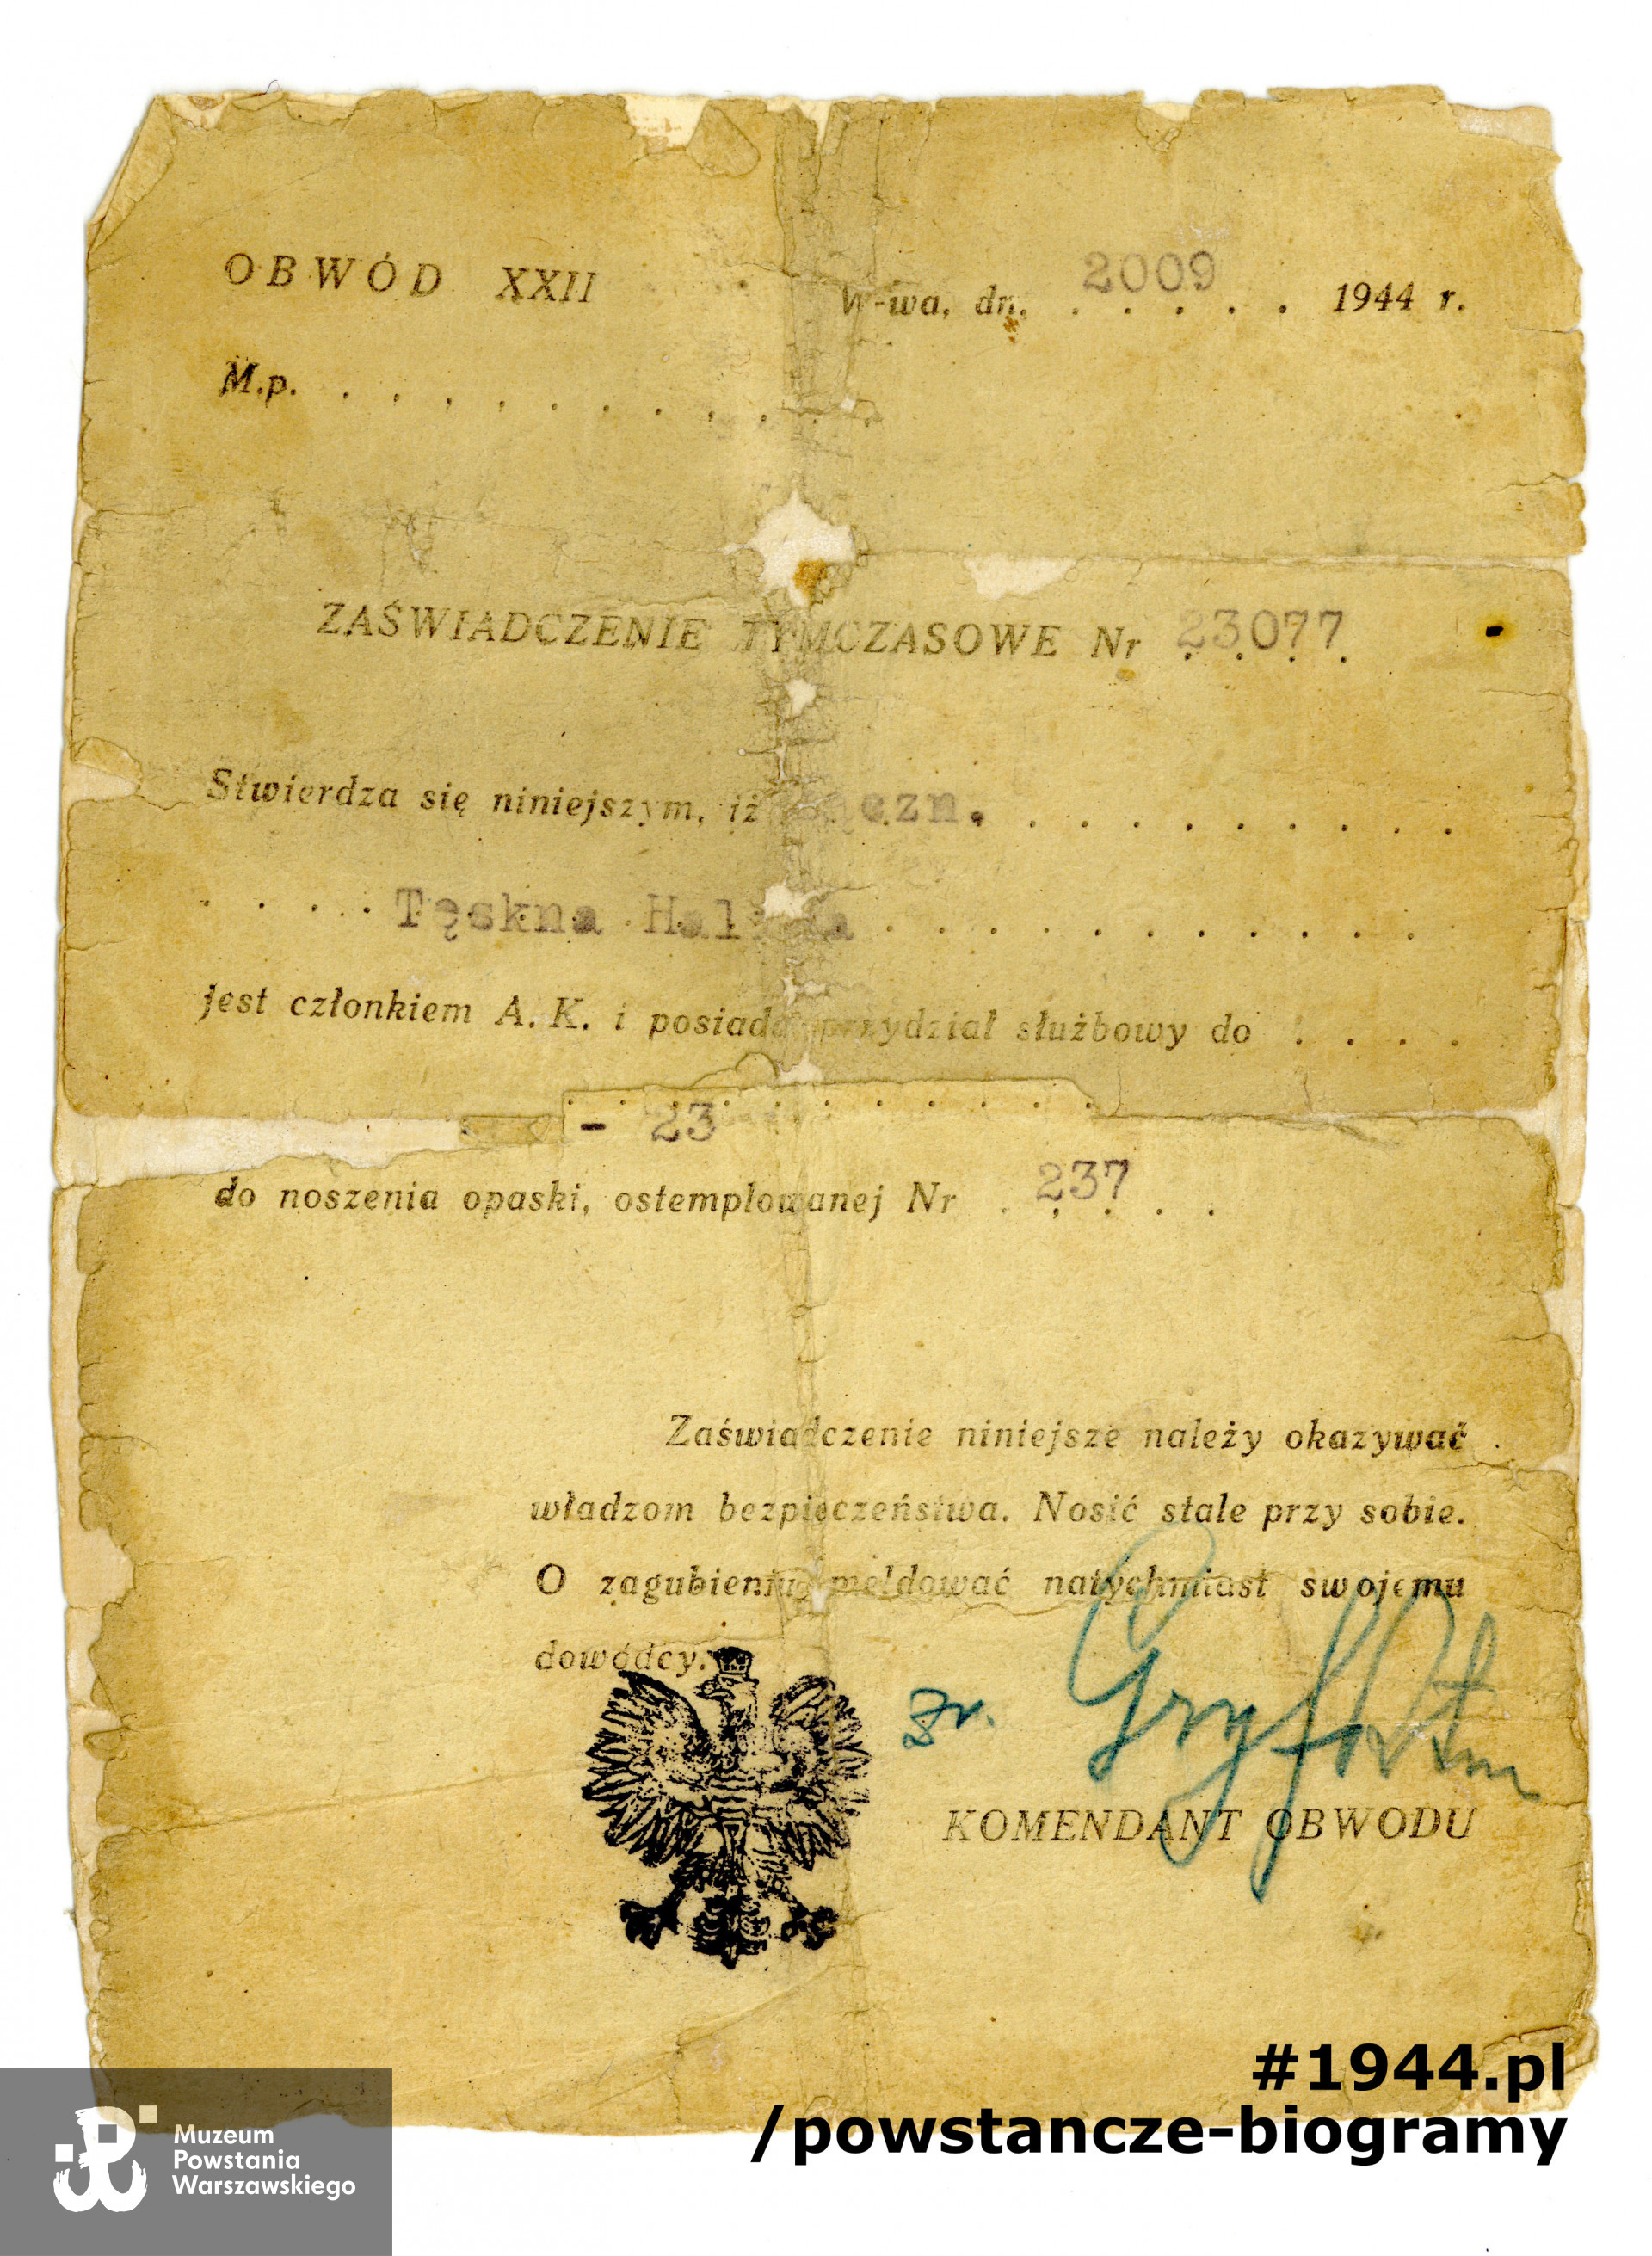 OBWÓD XXII
W-wa, dn. 2009 . . . . . 1944 r.
M.p. . . . . . . . . . . .
ZAŚWIADCZENIE TYMCZASOWE Nr 23077
Stwierdza się niniejszym, iż łączn. . . . . . . . . .
. . . . Tęskna Halina . . . . . . . . . . .
jest członkiem A. K. i posiada przydział służbowy do . . . .
- 23
do noszenia opaski, ostemplowanej Nr . 237 . .
Zaświadczenie niniejsze należy okazywać
władzom bezpieczeństwa. Nosić stale przy sobie.
O zagubieniu meldować natychmiast swojemu
dowódcy.
KOMENDANT OBWODU
#1944.pl
/powstancze-biogramy
Muzeum
Powstania
Warszawskiego